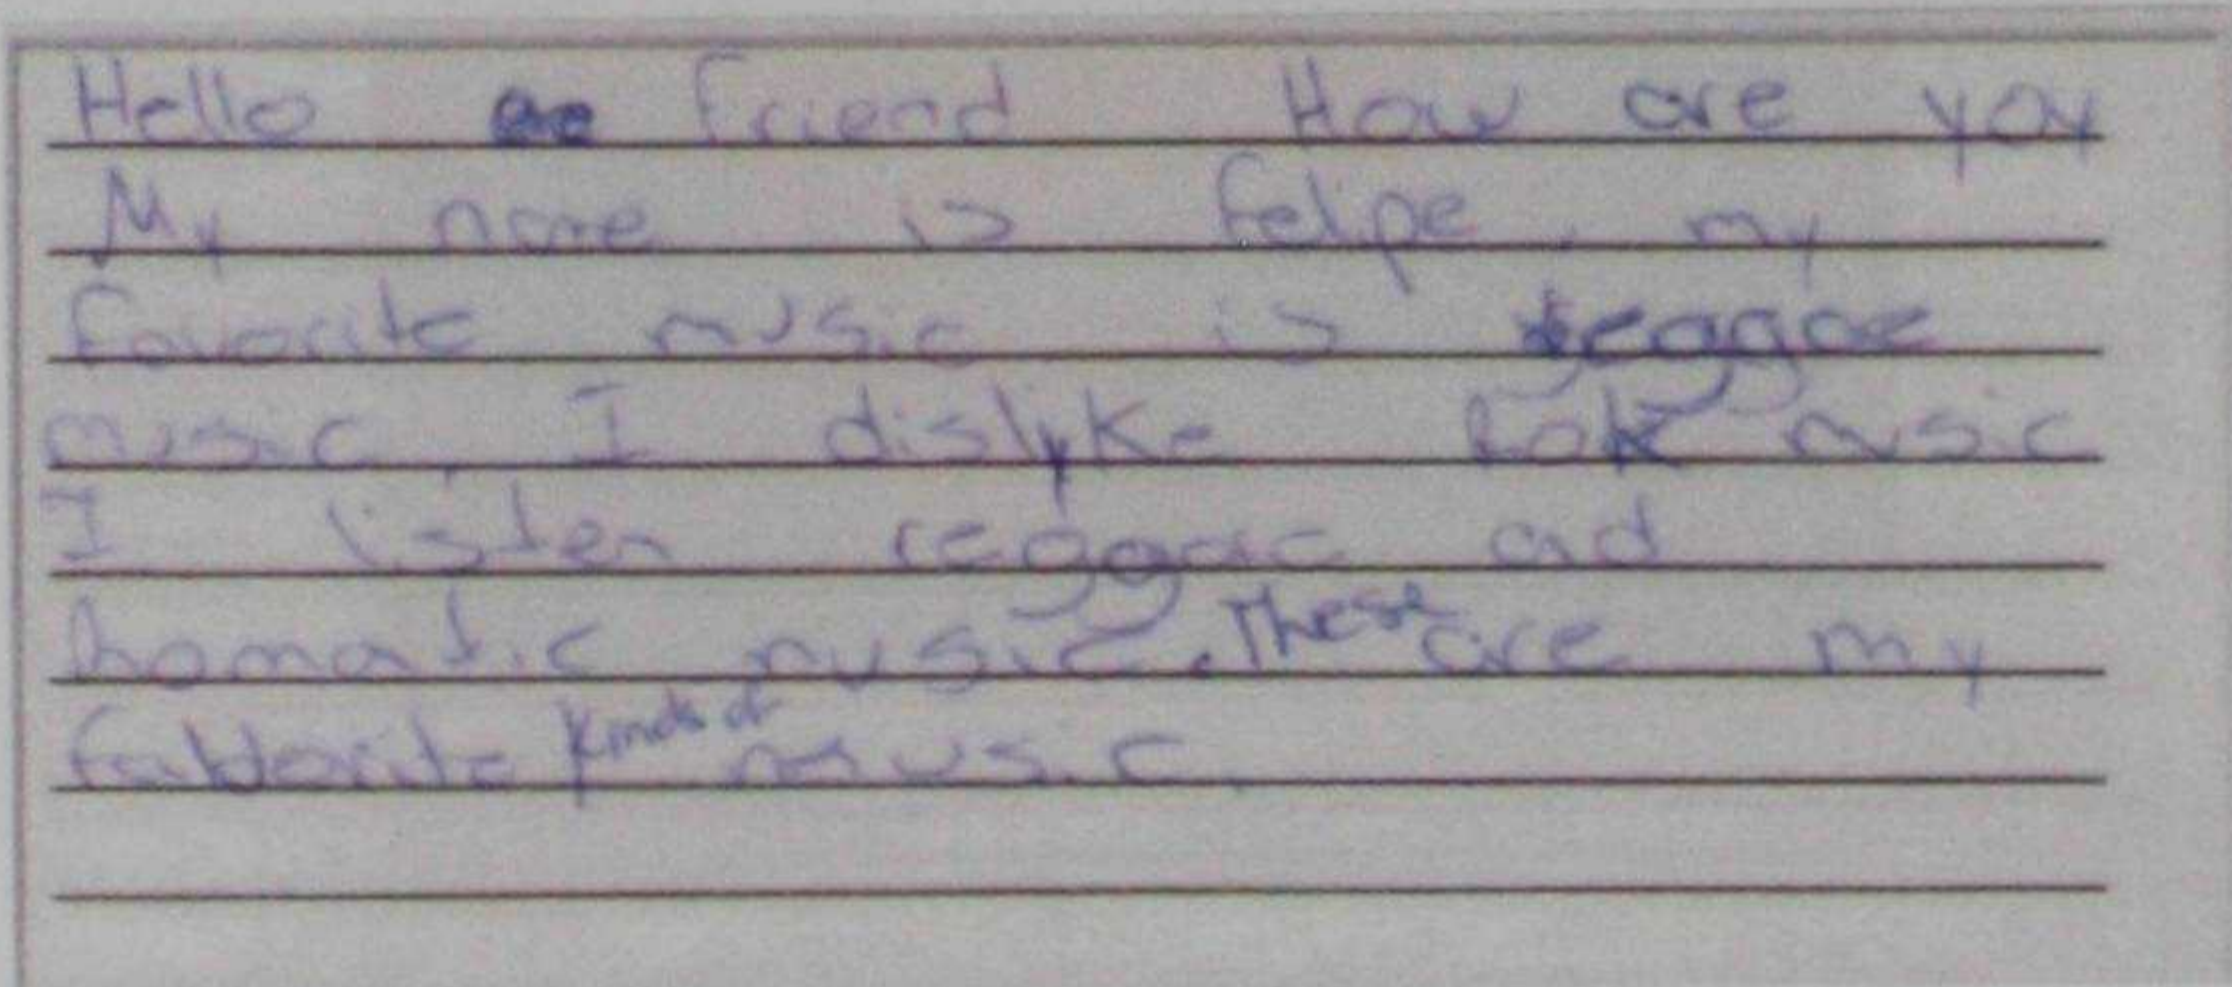 Hello friend How are you
My name is Felipe, my
favorite music is reggae
music. I dislyke Rok music
I listen reggae and
Romatic music. These are my
favorite kinds of music.